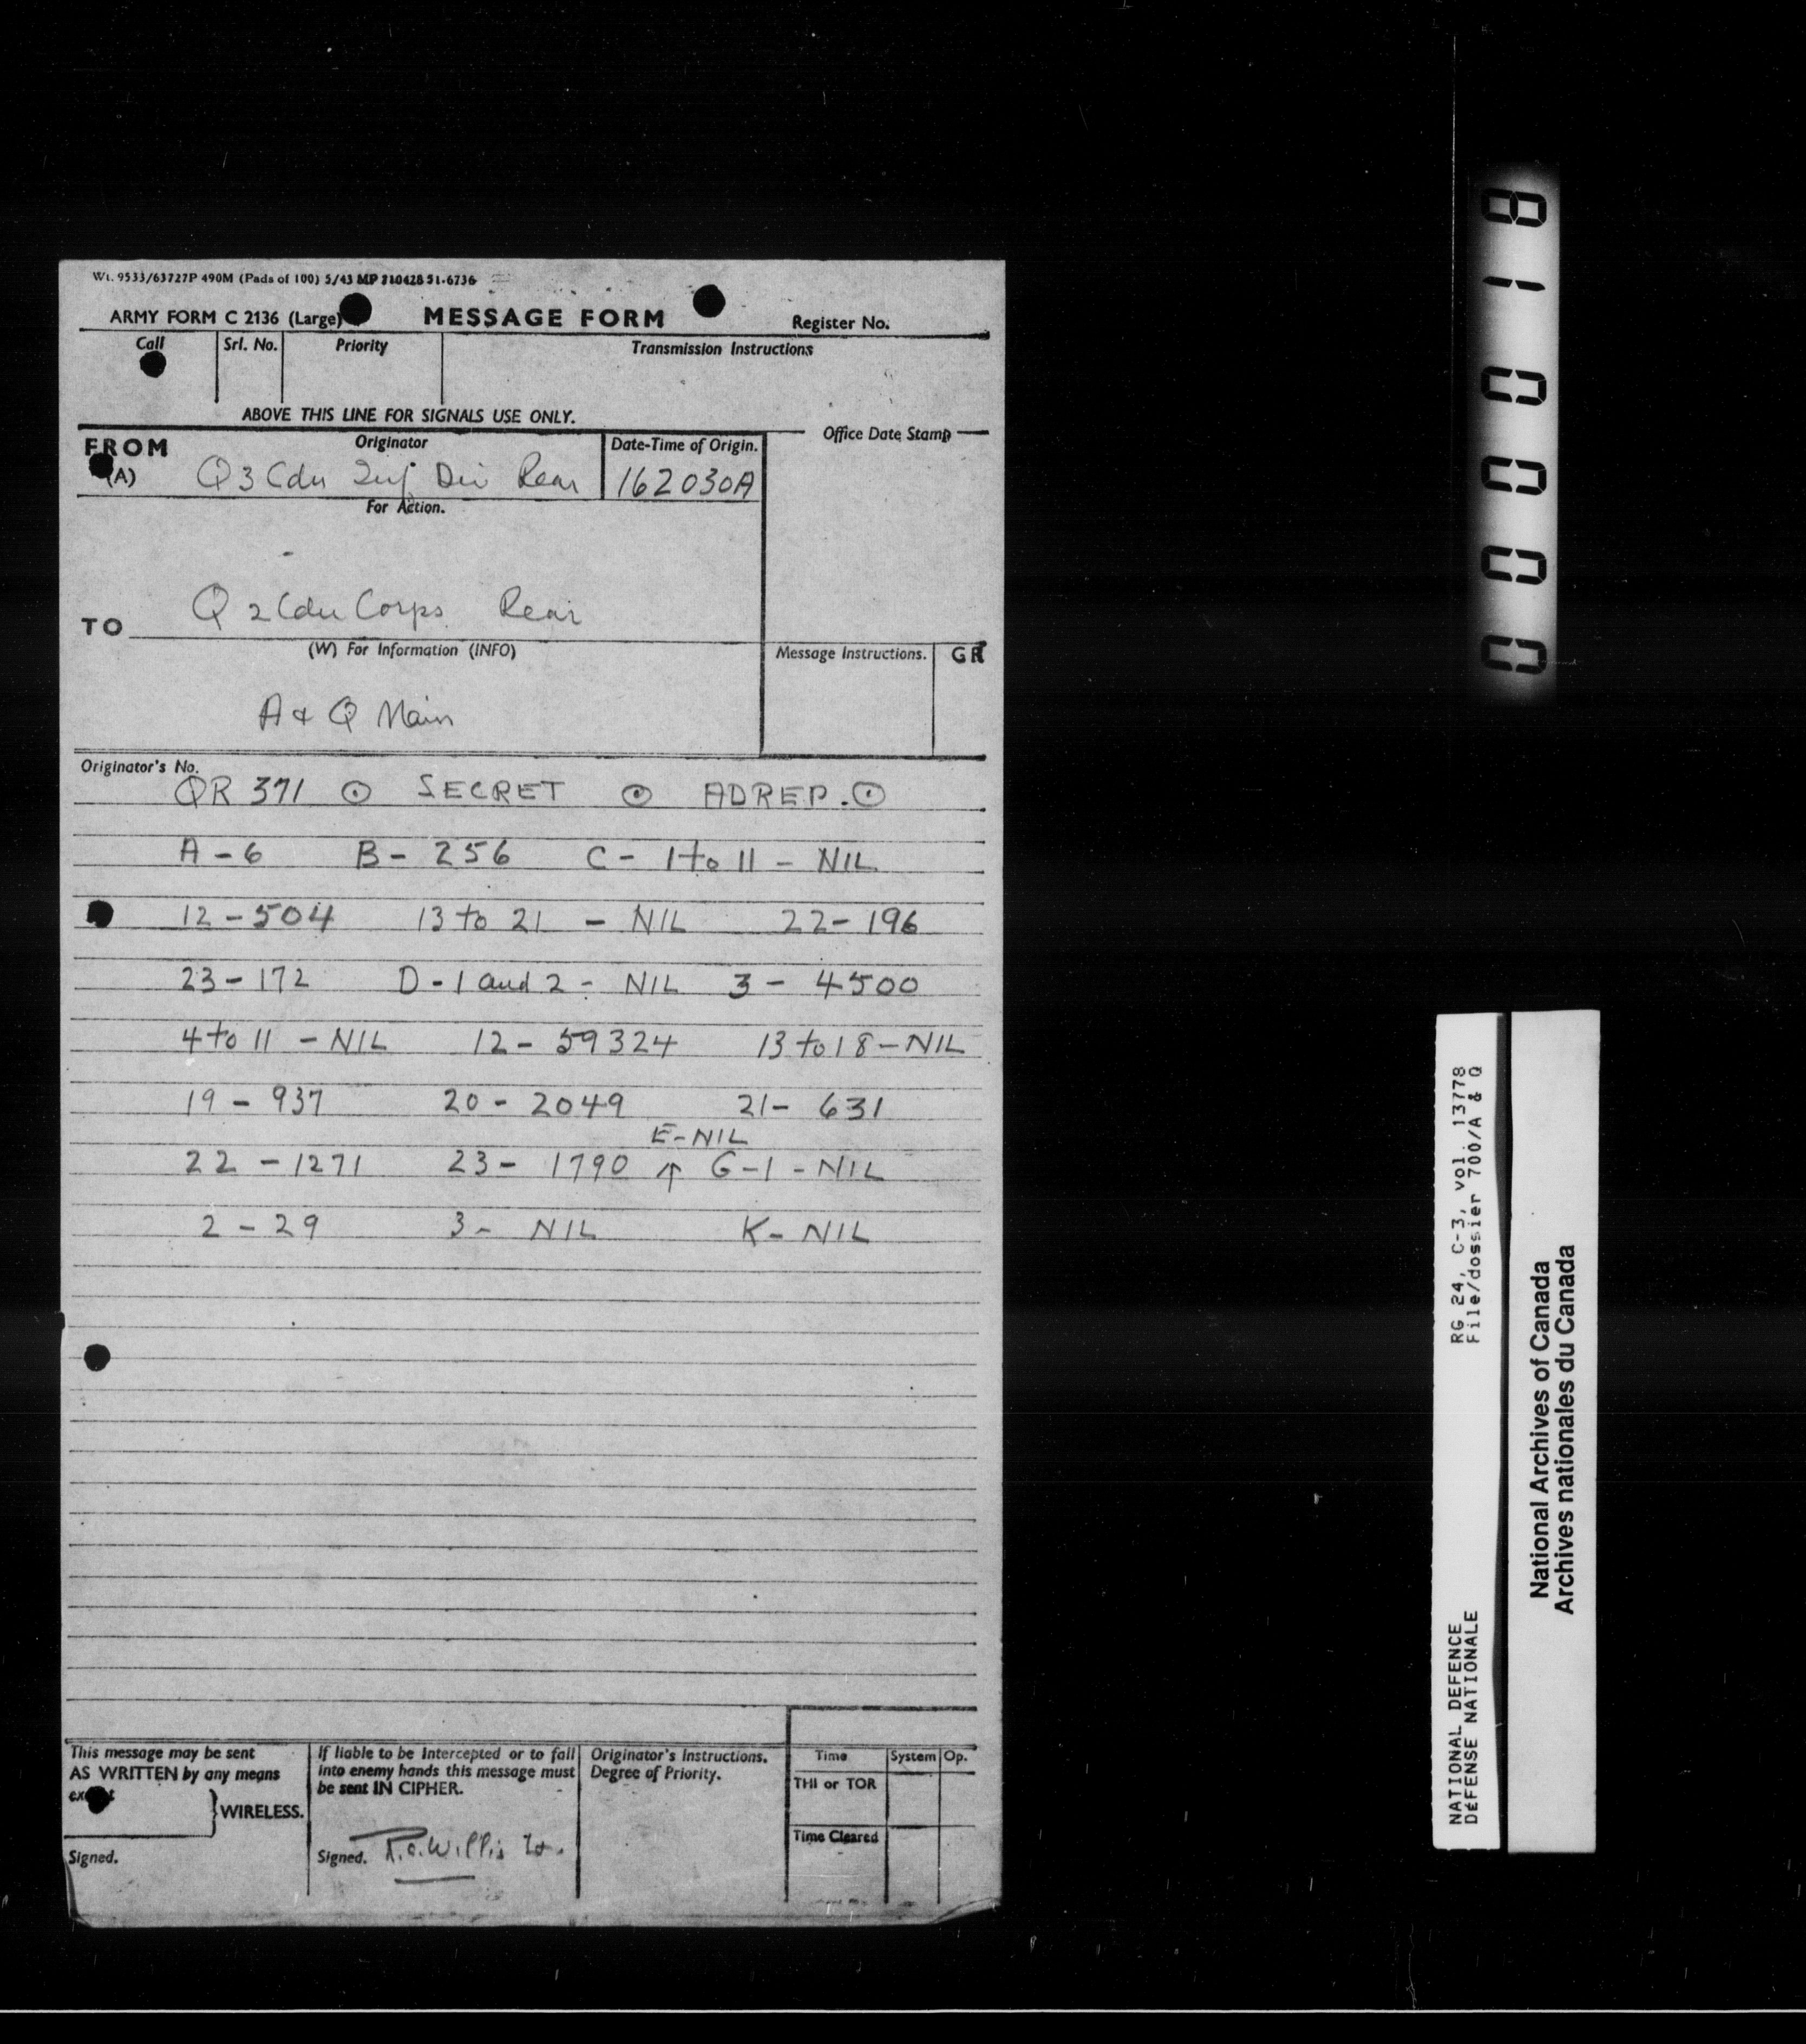 Wt. 9533/63727P 490M (Pads of 100) 5/43 MP 51-6736
ARMY FORM C 2136 (Large) MESSAGE FORM Register No.
Call Srl. No. Priority Transmission Instructions
ABOVE THIS LINE FOR SIGNALS USE ONLY.
FROM Originator Date-Time of Origin. Office Date Stamp
(A) Q 3 Cdn Inf Div Rear 162030A
For Action.
TO Q 2 Cdn Corps Rear
(W) For Information (INFO) Message Instructions. GR
A & Q Main
Originator's No.
QR 371 ⊙ SECRET ⊙ ADREP. ⊙
A - 6 B - 256 C - 1 to 11 - NIL
12 - 504 13 to 21 - NIL 22 - 196
23 - 172 D - 1 and 2 - NIL 3 - 4500
4 to 11 - NIL 12 - 59324 13 to 18 - NIL
19 - 937 20 - 2049 21 - 631
E - NIL
22 - 1271 23 - 1790 ↑ G - 1 - NIL
2 - 29 3 - NIL K - NIL
This message may be sent
AS WRITTEN by any means
except
} WIRELESS.
Signed.
If liable to be intercepted or to fall
into enemy hands this message must
be sent IN CIPHER.
Signed. R.O. Willis Lt.
Originator's Instructions.
Degree of Priority.
Time System Op.
THI or TOR
Time Cleared
00000118
NATIONAL DEFENCE RG 24, C-3, vol. 13778
DÉFENSE NATIONALE File/dossier 700/A & Q
National Archives of Canada
Archives nationales du Canada